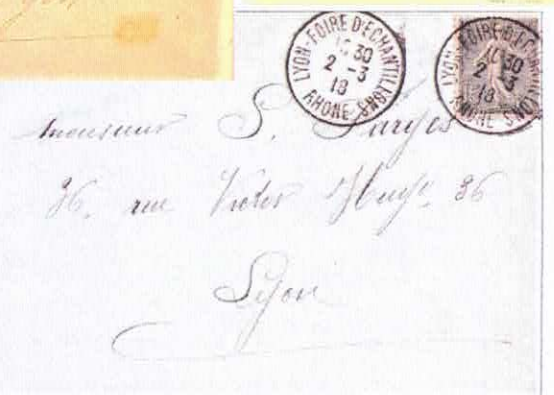 LYON-FOIRE D'ECHANTILLONS
16 30
2 -3
18
RHONE
LYON-FOIRE D'ECHANTILLONS
16 30
2 -3
18
RHONE
Monsieur S.
36, rue Victor Hugo 36
Lyon